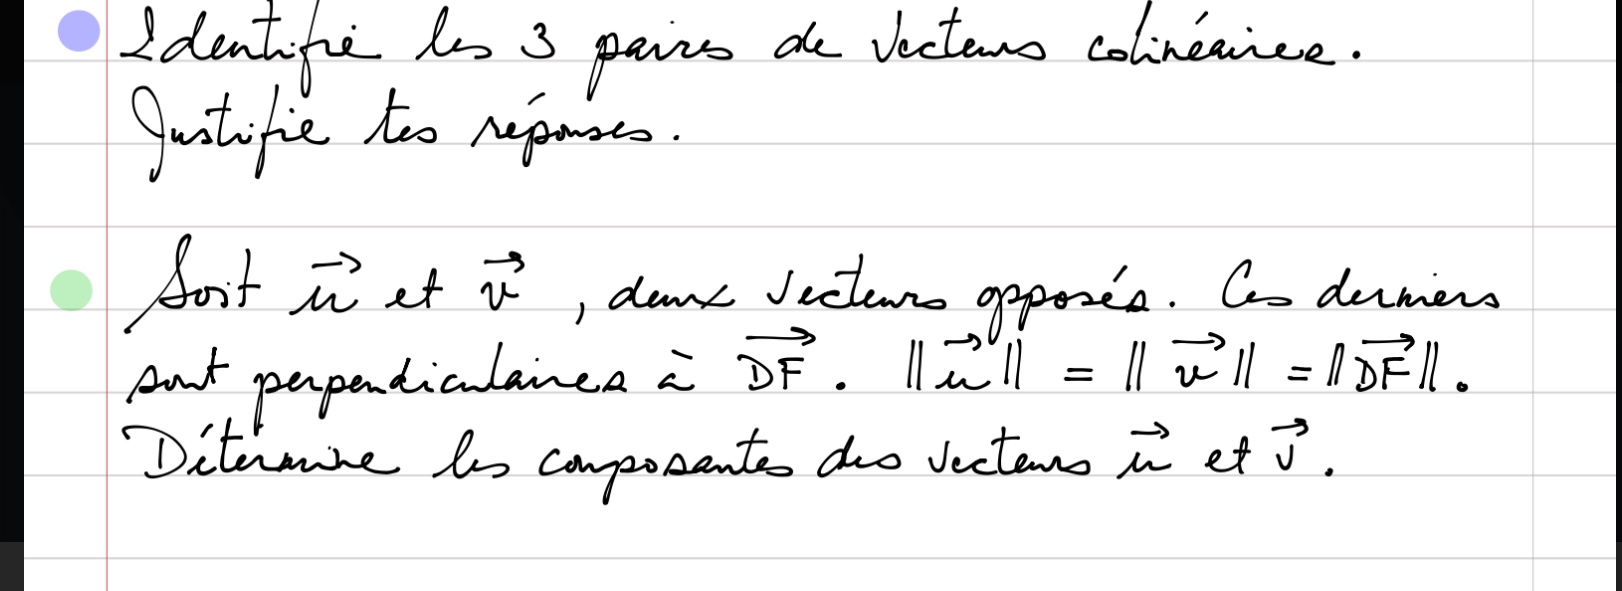 Identifie les 3 paires de vecteurs colinéaires.
Justifie tes réponses.
Soit u⃗ et v⃗, deux vecteurs opposés. Ces derniers
sont perpendiculaires à D͞F⃗. ||u⃗|| = ||v⃗|| = ||DF⃗||.
Détermine les composantes des vecteurs u⃗ et v⃗.